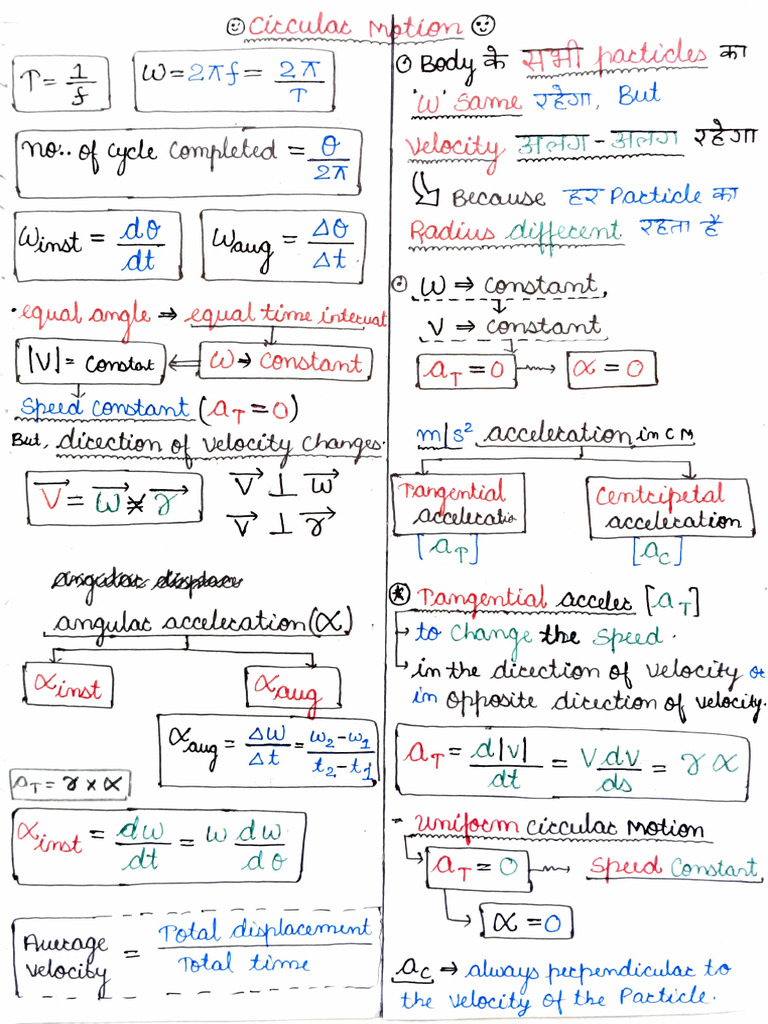 ☺ Circular Motion ☺
T = 1/f
ω = 2πf = 2π/T
no.. of cycle completed = θ/2π
ωinst = dθ/dt
ωaug = Δθ/Δt
• equal angle → equal time interval
|V| = constat ⇐ ω → constant
Speed constant (aT = 0)
But, direction of velocity changes.
V⃗ = ω⃗ × r⃗
V⃗ ⊥ ω⃗
V⃗ ⊥ r⃗
angular acceleration (α)
αinst
αaug
αaug = Δω/Δt = ω2-ω1/t2-t1
aT = r × α
αinst = dω/dt = ω dω/dθ
Average velocity = Total displacement/Total time
⊙ Body के सभी particles का
'ω' same रहेगा, But
velocity अलग - अलग रहेगा
↳ Because हर Particle का
Radius different रहता है
⊙ ω → constant,
V → constant
aT = 0 → α = 0
m/s² acceleration in CM
Tangential acceleratio
[aT]
Centripetal acceleration
[ac]
⊛ Tangential acceler [aT]
→ to change the speed.
↳ in the direction of velocity or
in opposite direction of velocity.
aT = d|v|/dt = V dv/ds = r α
- Uniform circular Motion
aT = 0 → Speed Constant,
α = 0
ac → always perpendicular to
the velocity of the Particle.